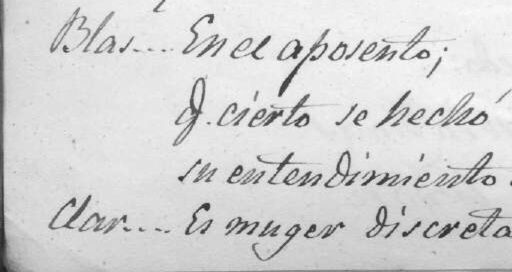 Blas.... En el aposento;
q. cierto se hechó
su entendimiento.
Clar.... Es muger discreta